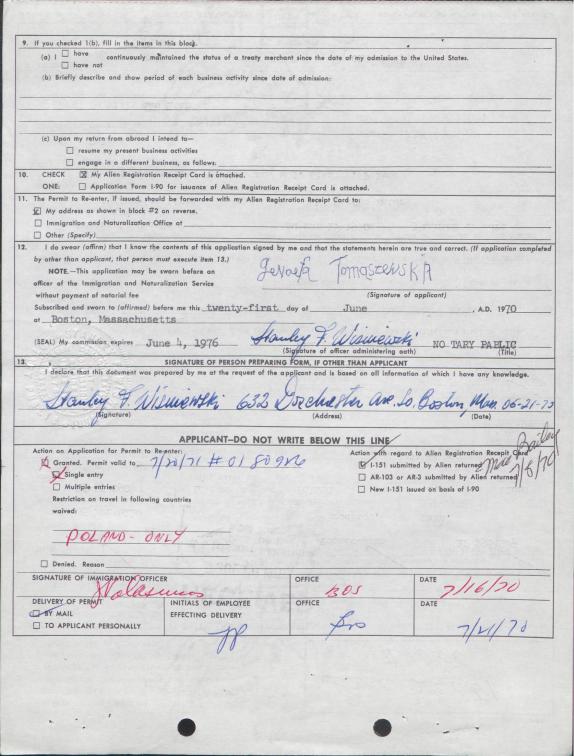 9. If you checked 1(b), fill in the items in this block.
(a) I ☐ have
☐ have not continuously maintained the status of a treaty merchant since the date of my admission to the United States.
(b) Briefly describe and show period of each business activity since date of admission:
(c) Upon my return from abroad I intend to—
☐ resume my present business activities
☐ engage in a different business, as follows:
10. CHECK ☒ My Alien Registration Receipt Card is attached.
ONE: ☐ Application Form I-90 for issuance of Alien Registration Receipt Card is attached.
11. The Permit to Re-enter, if issued, should be forwarded with my Alien Registration Receipt Card to:
☒ My address as shown in block #2 on reverse.
☐ Immigration and Naturalization Office at
☐ Other (Specify)
12. I do swear (affirm) that I know the contents of this application signed by me and that the statements herein are true and correct. (If application completed
by other than applicant, that person must execute item 13.)
NOTE.—This application may be sworn before an
officer of the Immigration and Naturalization Service
without payment of notarial fee
Genoefa TOMASZEWSKA
(Signature of applicant)
Subscribed and sworn to (affirmed) before me this twenty-first day of June , A.D. 1970
at Boston, Massachusetts
(SEAL) My commission expires June 4, 1976 Stanley F. Wisniewski NOTARY PABLIC
(Signature of officer administering oath) (Title)
13. SIGNATURE OF PERSON PREPARING FORM, IF OTHER THAN APPLICANT
I declare that this document was prepared by me at the request of the applicant and is based on all information of which I have any knowledge.
Stanley F. Wisniewski 632 Dorchester Ave. So. Boston Mass. 06-21-70
(Signature) (Address) (Date)
APPLICANT—DO NOT WRITE BELOW THIS LINE
Action on Application for Permit to Re-enter:
☒ Granted. Permit valid to 7/20/71 # 0180926
☒ Single entry
☐ Multiple entries
Restriction on travel in following countries
waived:
POLAND - ONLY
☐ Denied. Reason
Action with regard to Alien Registration Receipt Card
☑ I-151 submitted by Alien returned
☐ AR-103 or AR-3 submitted by Alien returned
☐ New I-151 issued on basis of I-90
Bailey
SIGNATURE OF IMMIGRATION OFFICER OFFICE BOS DATE 7/16/70
DELIVERY OF PERMIT
☑ BY MAIL
☐ TO APPLICANT PERSONALLY
INITIALS OF EMPLOYEE
EFFECTING DELIVERY
OFFICE
Bos
DATE
7/21/70